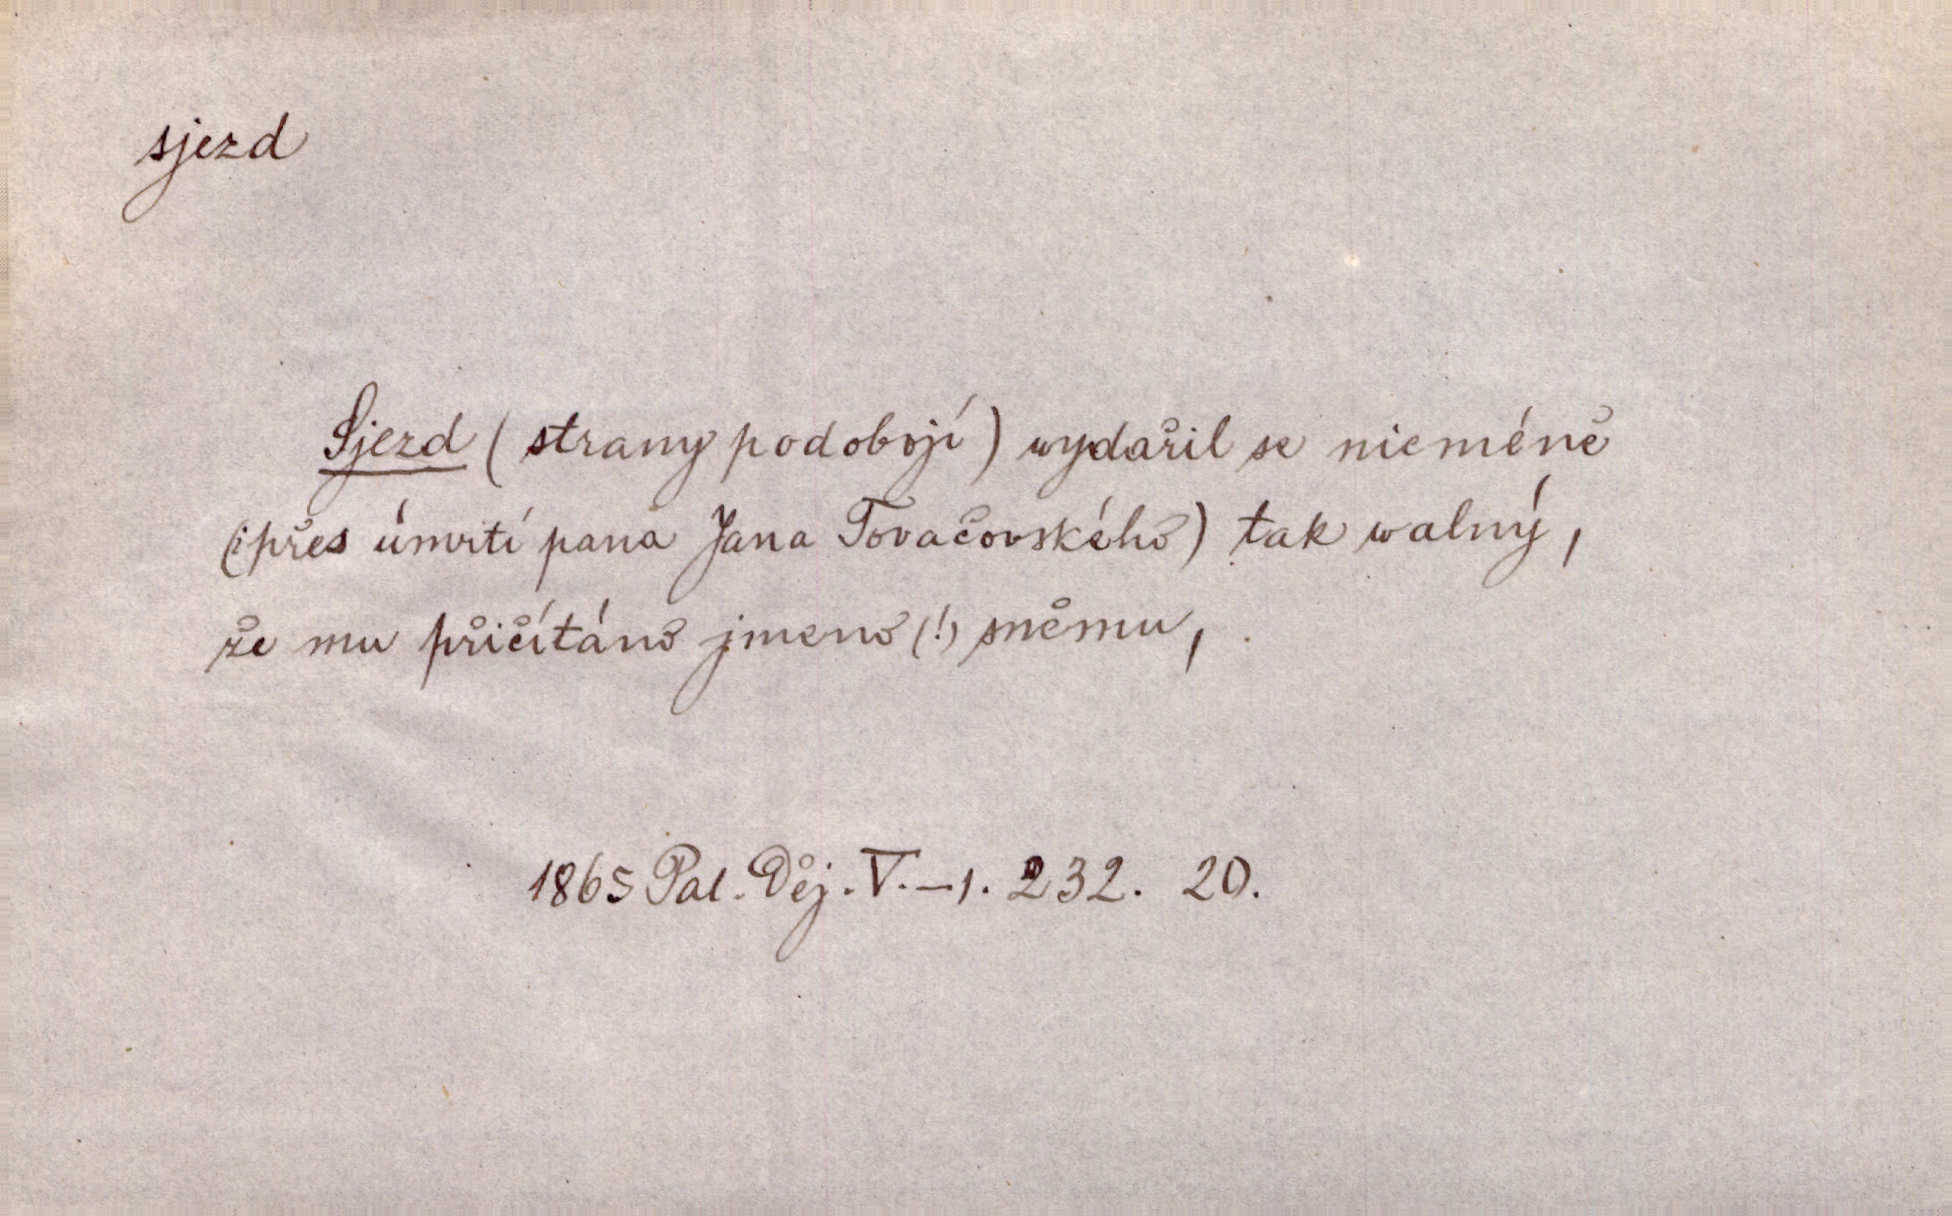 sjezd
Sjezd (strany podobojí) wydařil se nieméně
(i přes úmrtí pana Jana Tovačovského) tak walný,
že mu přičítáno jmeno (!) sněmu,
1865 Pal. Děj. V.–1. 232. 20.